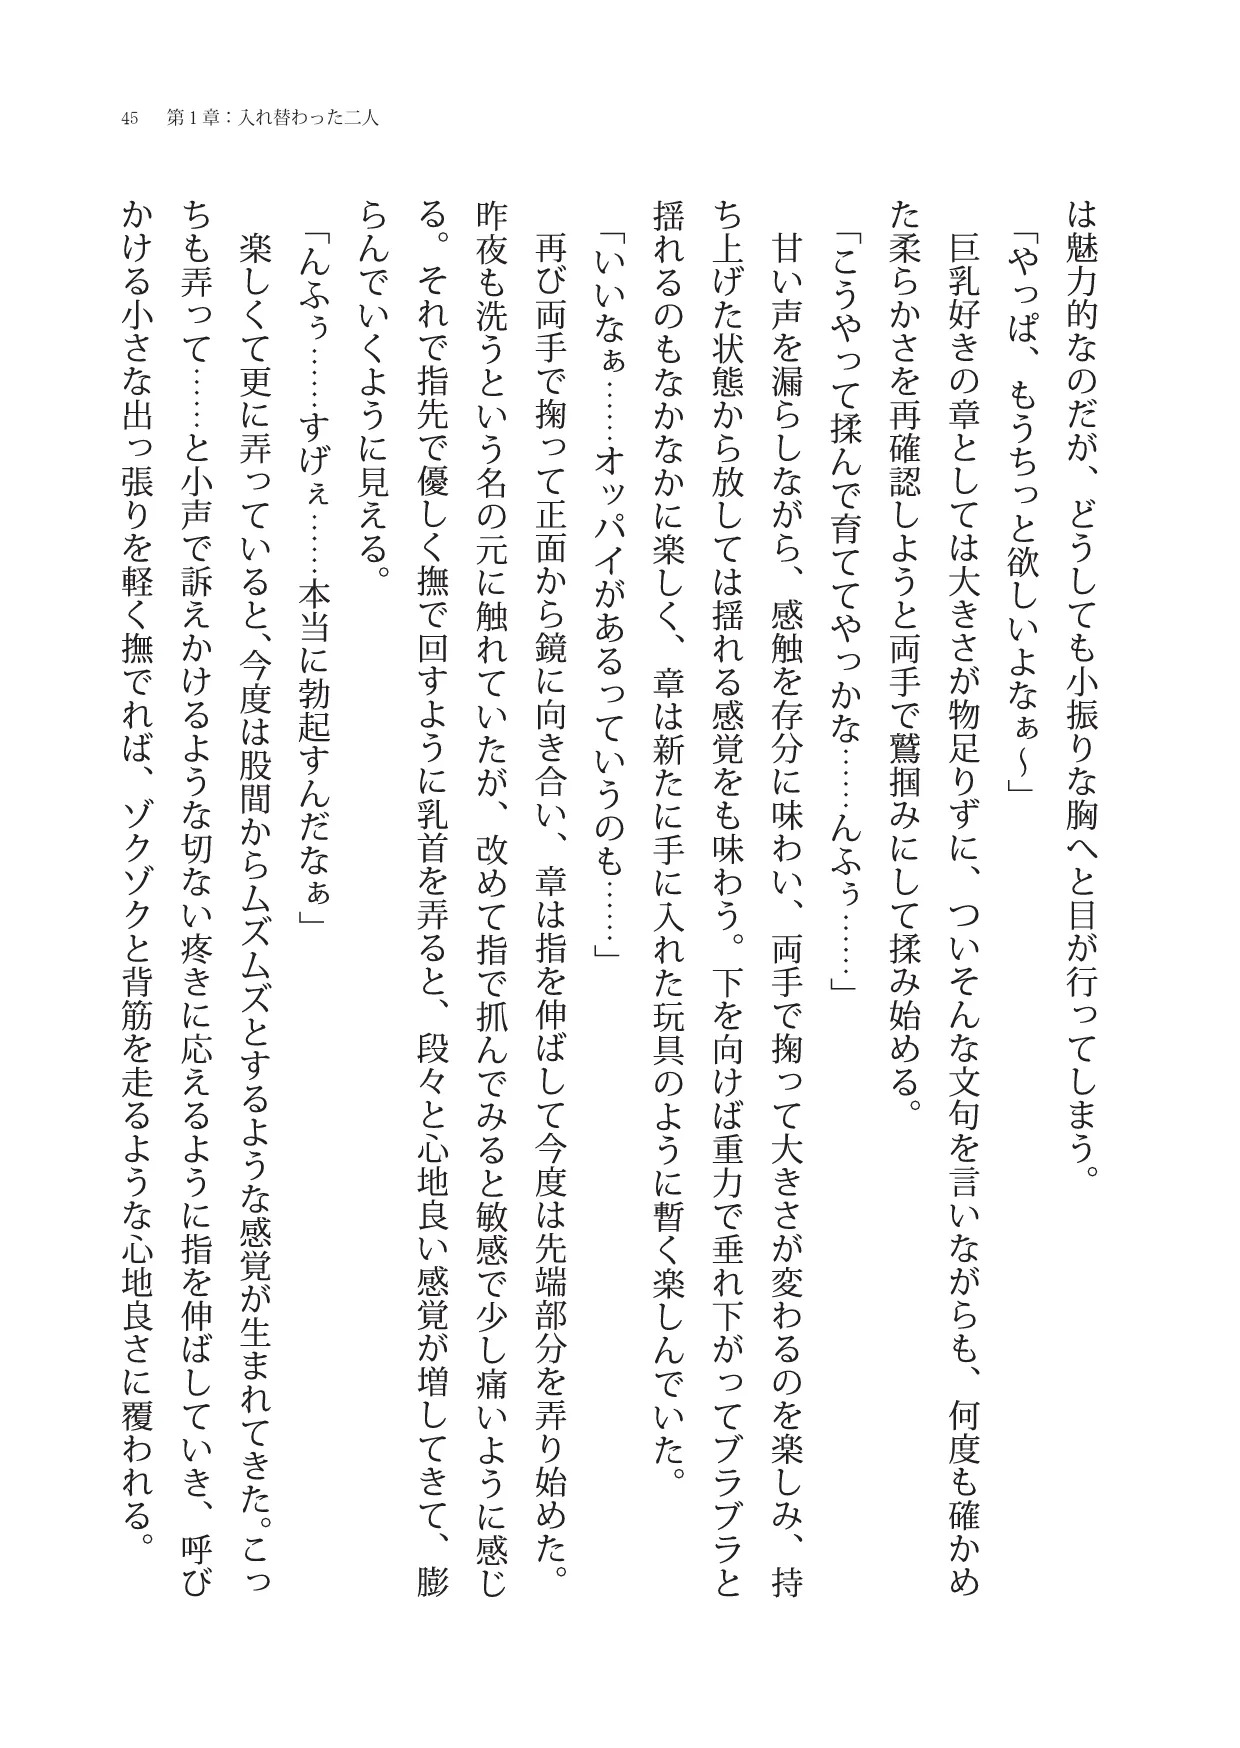 45 第1章：入れ替わった二人
は魅力的なのだが、どうしても小振りな胸へと目が行ってしまう。
「やっぱ、もうちっと欲しいよなぁ～」
巨乳好きの章としては大きさが物足りずに、ついそんな文句を言いながらも、何度も確かめ
た柔らかさを再確認しようと両手で鷲掴みにして揉み始める。
「こうやって揉んで育ててやっかな……んふぅ……」
甘い声を漏らしながら、感触を存分に味わい、両手で掬って大きさが変わるのを楽しみ、持
ち上げた状態から放しては揺れる感覚をも味わう。下を向けば重力で垂れ下がってブラブラと
揺れるのもなかなかに楽しく、章は新たに手に入れた玩具のように暫く楽しんでいた。
「いいなぁ……オッパイがあるっていうのも……」
再び両手で掬って正面から鏡に向き合い、章は指を伸ばして今度は先端部分を弄り始めた。
昨夜も洗うという名の元に触れていたが、改めて指で抓んでみると敏感で少し痛いように感じ
る。それで指先で優しく撫で回すように乳首を弄ると、段々と心地良い感覚が増してきて、膨
らんでいくように見える。
「んふぅ……すげぇ……本当に勃起すんだなぁ」
楽しくて更に弄っていると、今度は股間からムズムズとするような感覚が生まれてきた。こっ
ちも弄って……と小声で訴えかけるような切ない疼きに応えるように指を伸ばしていき、呼び
かける小さな出っ張りを軽く撫でれば、ゾクゾクと背筋を走るような心地良さに覆われる。